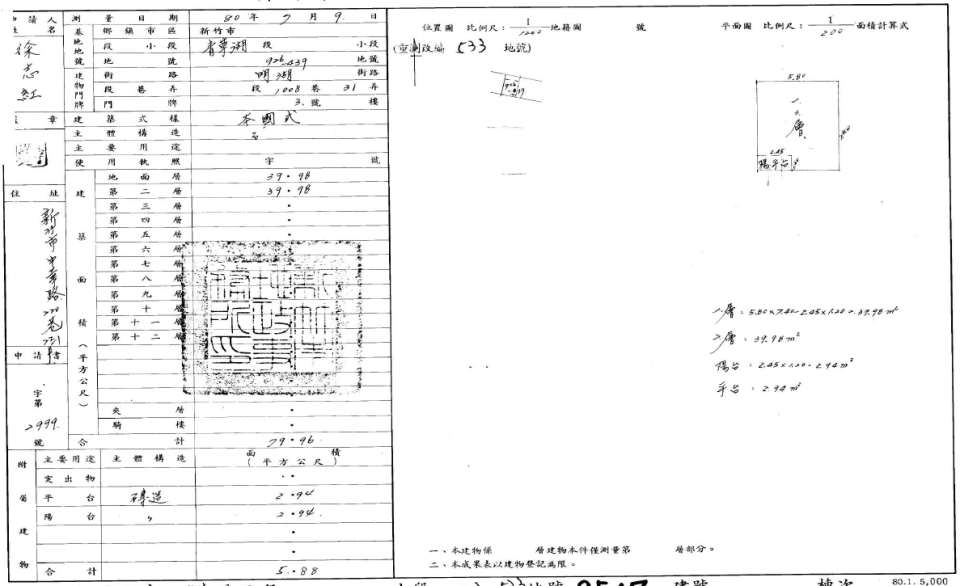 測量日期 80年7月9日
基地地號 鄉鎮市區 新竹市
段小段 青草湖段 小段
地號 926-439 地號
建物門牌 街路 明湖 街路
段巷弄 段1008巷31弄
門牌 3.號 樓
建築式樣 本國式
主體構造
主要用途
使用執照 字 號
建築面積(平方公尺)
地面層 39.98
第二層 39.98
第三層
第四層
第五層
第六層
第七層
第八層
第九層
第十層
第十一層
第十二層
夾層
騎樓
合計 79.96
請人
徐志紅
章
住址
新竹市中華路
申請書
字第
2999
號
附屬建物
主要用途 主體構造 面積(平方公尺)
突出物
平台 磚造 2.94
陽台 〃 2.94
合計 5.88
位置圖 比例尺:1/1200 地籍圖 號
(重測改編 533 地號)
926-439
平面圖 比例尺:1/200 面積計算式
5.80
層
2.45
陽平台
一層:5.80×7.40-2.45×1.20=39.98m²
2層:39.98m²
陽台:2.45×1.20=2.94m²
平台:2.94m²
一、本建物係 層建物本件僅測量第 層部分。
二、本成果表以建物登記為限。
地號 建號 棟次
80.1.5,000